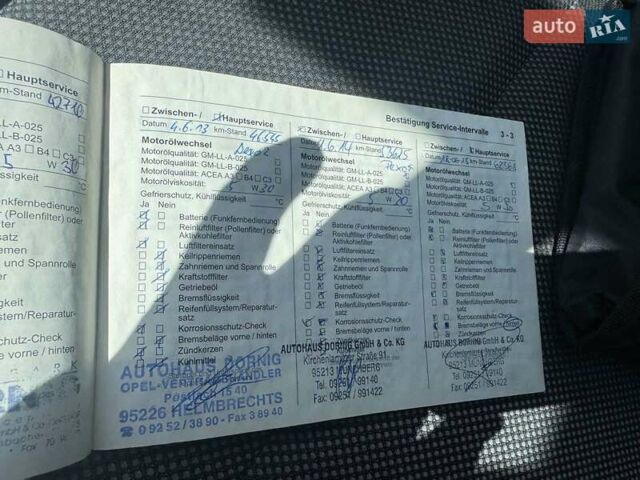 auto RIA
.com
Hauptservice
km-Stand 42710
L-A-025
L-B-025
A3 B4 C3
5 W 30
üssigkeit °C
Nein
nfernbedienung)
(Pollenfilter) oder
er
einsatz
emen
n und Spannrolle
ilter
gkeit
System/Reparatur-
schutz-Check
e vorne / hinten
Bestätigung Service-Intervalle 3 - 3
Zwischen- / Hauptservice
Datum 4.6.13 km-Stand
Motorölwechsel
Motorölqualität: GM-LL-A-025
Motorölqualität: GM-LL-B-025
Motorölqualität: ACEA A3 B4 C3
Motorölviskosität: 5 W 30
Gefrierschutz, Kühlflüssigkeit °C
Ja Nein
Batterie (Funkfernbedienung)
Reinluftfilter (Pollenfilter) oder
Aktivkohlefilter
Luftfiltereinsatz
Keilrippenriemen
Zahnriemen und Spannrolle
Kraftstofffilter
Getriebeöl
Bremsflüssigkeit
Reifenfüllsystem/Reparatur-
satz
Korrosionsschutz-Check
Bremsbeläge vorne / hinten
Zündkerzen
Kühlmittel
AUTOHAUS DORNIG
OPEL-VERTRAGSHÄNDLER
Postfach 15 40
95226 HELMBRECHTS
☎ 0 92 52 / 38 90 - Fax 3 89 40
Zwischen- / Hauptservice
Datum km-Stand
Motorölwechsel
Motorölqualität: GM-LL-A-025
Motorölqualität: GM-LL-B-025
Motorölqualität: ACEA A3 B4 C3
Motorölviskosität: 5 W 20
Gefrierschutz, Kühlflüssigkeit °C
Ja Nein
Batterie (Funkfernbedienung)
Reinluftfilter (Pollenfilter) oder
Aktivkohlefilter
Luftfiltereinsatz
Keilrippenriemen
Zahnriemen und Spannrolle
Kraftstofffilter
Getriebeöl
Bremsflüssigkeit
Reifenfüllsystem/Reparatur-
satz
Korrosionsschutz-Check
Bremsbeläge vorne / hinten
AUTOHAUS DORNIG GmbH & Co. KG
Kirchenlamitzer Straße 91
95213 MÜNCHBERG
Tel. 09251 / 99140
Fax: 09251 / 991422
Zwischen- / Hauptservice
Datum km-Stand
Motorölwechsel
Motorölqualität: GM-LL-A-025
Motorölqualität: GM-LL-B-025
Motorölqualität: ACEA A3 B4 C3
Motorölviskosität: 5 W
Gefrierschutz, Kühlflüssigkeit °C
Ja Nein
Batterie (Funkfernbedienung)
Reinluftfilter (Pollenfilter) oder
Aktivkohlefilter
Luftfiltereinsatz
Keilrippenriemen
Zahnriemen und Spannrolle
Kraftstofffilter
Getriebeöl
Bremsflüssigkeit
Reifenfüllsystem/Reparatur-
satz
Korrosionsschutz-Check
Bremsbeläge vorne / hinten
AUTOHAUS DORNIG GmbH & Co. KG
Kirchenlamitzer Straße 91
95213 MÜNCHBERG
Tel. 09251 / 99140
Fax: 09251 / 991422